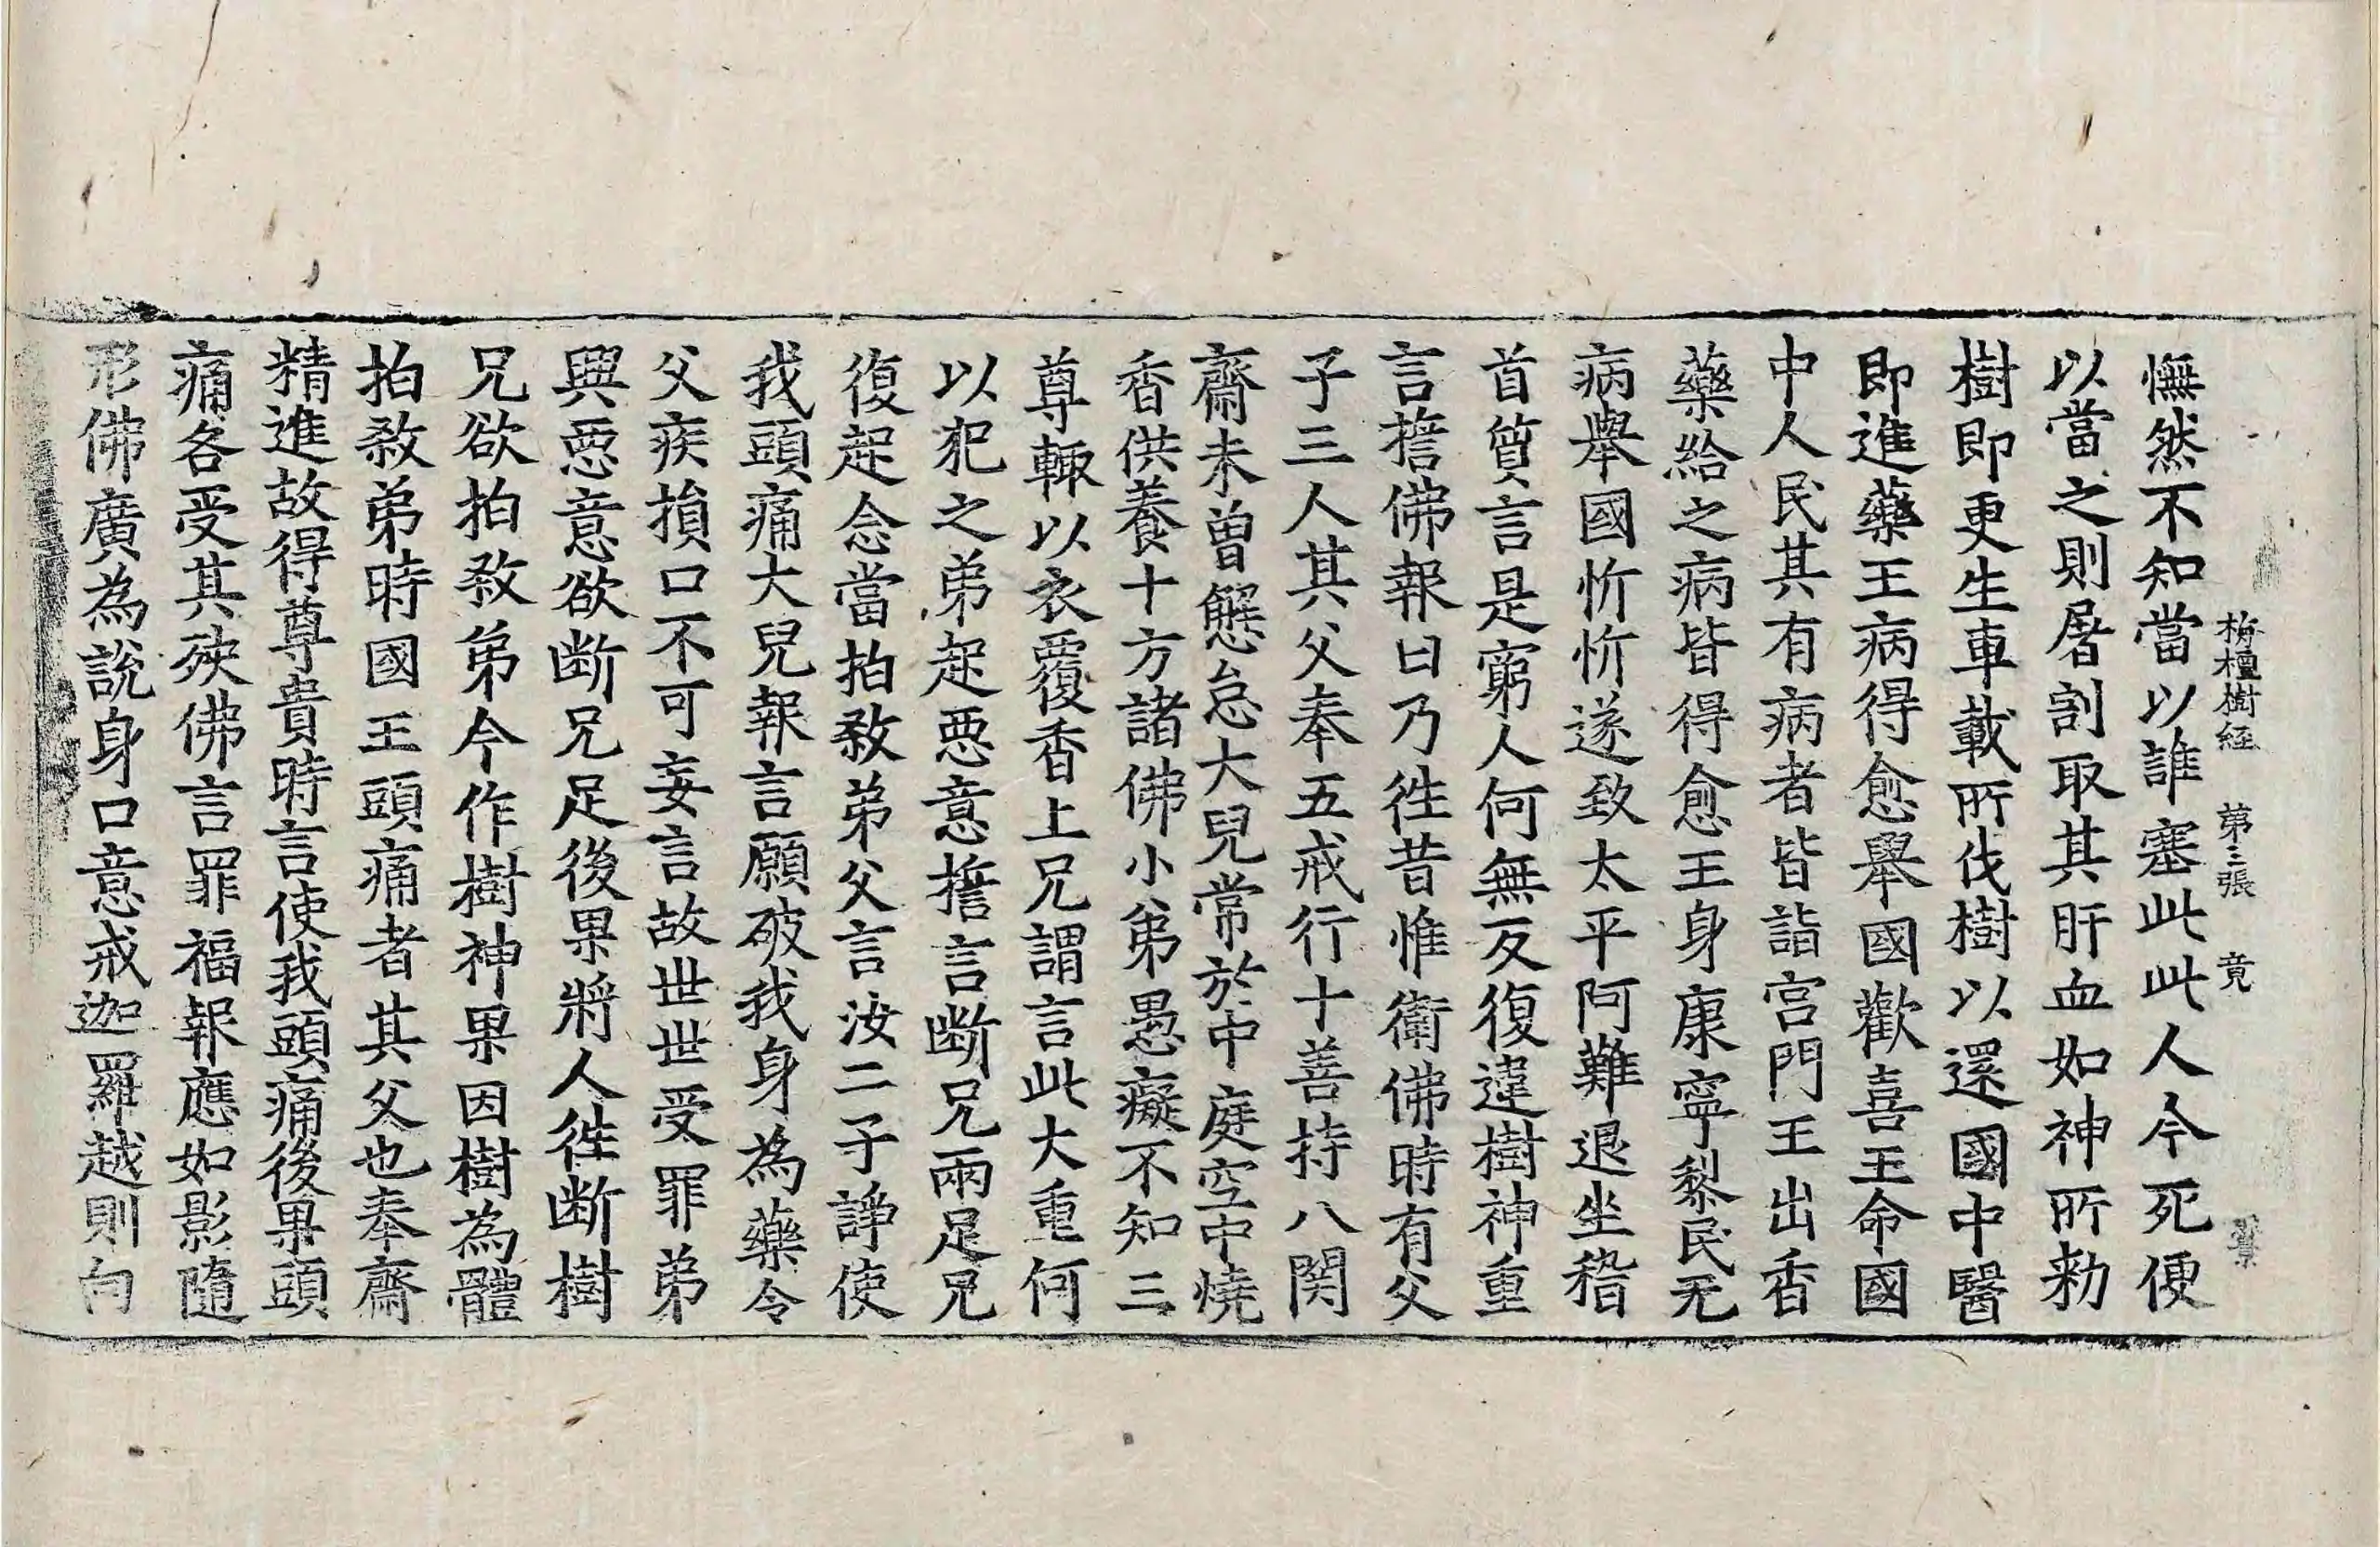 栴檀樹経 第三張 竟
憮然不知當以誰塞此此人今死便
以當之則屠割取其肝血如神所勑
樹即更生車載所伐樹以還國中醫
即進藥王病得愈舉國歡喜王命國
中人民其有病者皆詣宮門王出香
藥給之病皆得愈王身康寧黎民无
病舉國忻忻遂致太平阿難退坐稽
首質言是窮人何無反復違樹神重
言擔佛報曰乃徃昔惟衛佛時有父
子三人其父奉五戒行十善持八関
齋未曽懈怠大兒常於中庭空中燒
香供養十方諸佛小弟愚癡不知三
尊輙以衣覆香上兄謂言此大重何
以犯之弟起惡意擔言断兄兩足兄
復起念當拍敎弟父言汝二子諍使
我頭痛大兒報言願破我身為藥令
父疾損口不可妄言故世世受罪弟
興惡意欲断兄足後果將人徃断樹
兄欲拍敎弟今作樹神果因樹為體
拍敎弟時國王頭痛者其父也奉齋
精進故得尊貴時言使我頭痛後果頭
痛各受其殃佛言罪福報應如影隨
形佛廣為說身口意戒迦羅越則向